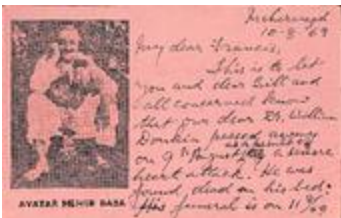 Meherazad
10-8-69
My dear Francis,
This is to let
you and dear Bill and
all concerned know
that our dear Dr. William
Donkin passed away
on 9th August, a severe
heart attack. He was
found dead on his bed.
His funeral is on 11/8/69
AVATAR MEHER BABA